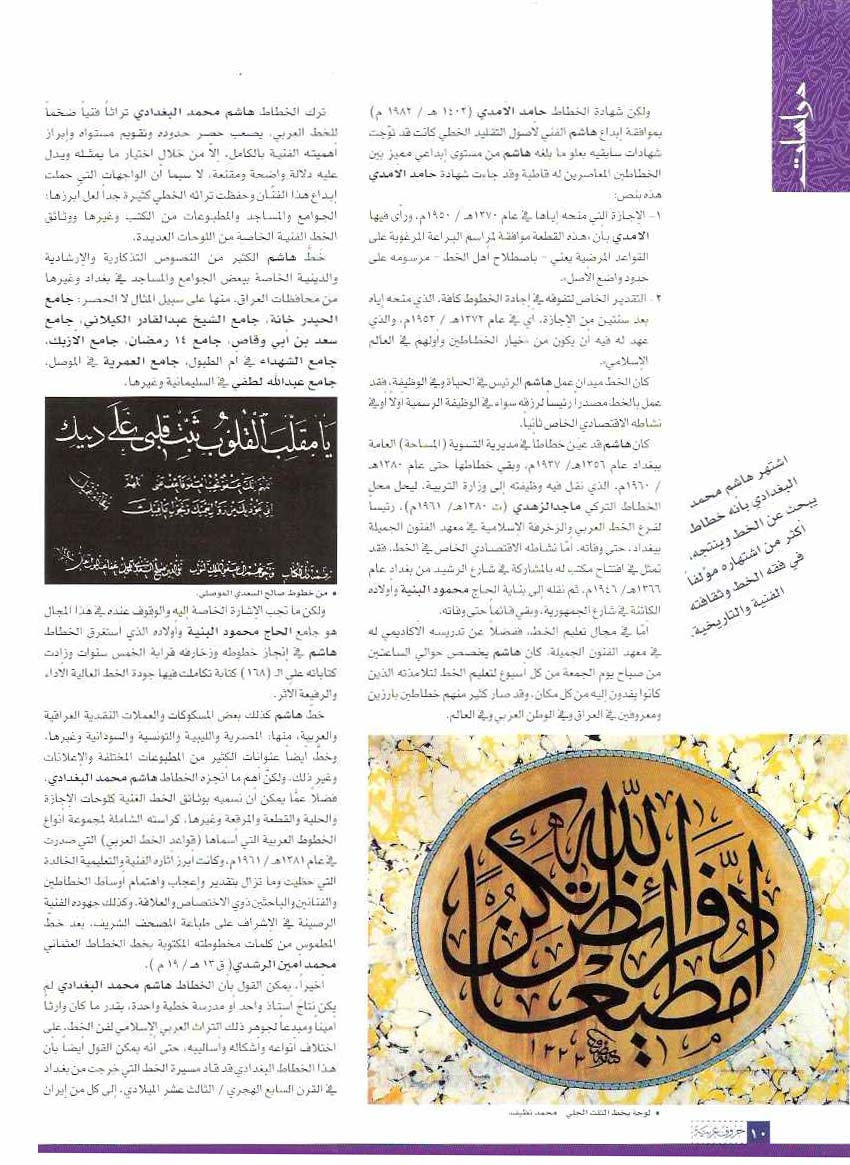 دراسات
ولكن شهادة الخطاط حامد الآمدي (١٤٠٢ هـ / ١٩٨٢ م)
بموافقة إبداع هاشم الفني لأصول التقليد الخطي كانت قد توّجت
شهادات سابقيه بعلو ما بلغه هاشم من مستوى إبداعي مميز بين
الخطاطين المعاصرين له قاطبة وقد جاءت شهادة حامد الآمدي
هذه بنص:
١- الإجازة التي منحه إياها في عام ١٣٧٠هـ / ١٩٥٠م، ورأى فيها
الآمدي بأن «هذه القطعة موافقة لمراسم البراعة المرغوبة على
القواعد المرضية يعني - باصطلاح أهل الخط - مرسومه على
حدود واضع الأصل».
٢- التقدير الخاص لتفوقه في إجادة الخطوط كافة، الذي منحه إياه
بعد سنتين من الإجازة، أي في عام ١٣٧٢هـ / ١٩٥٢م، والذي
عهد له فيه أن يكون من «خيار الخطاطين وأولهم في العالم
الإسلامي».
كان الخط ميدان عمل هاشم الرئيس في الحياة وفي الوظيفة، فقد
عمل بالخط مصدراً رئيساً لرزقه سواء في الوظيفة الرسمية أولاً أو في
نشاطه الاقتصادي الخاص ثانياً.
كان هاشم قد عين خطاطاً في مديرية التسوية (المساحة) العامة
ببغداد عام ١٣٥٦هـ/ ١٩٣٧م، وبقي خطاطها حتى عام ١٣٨٠هـ
/ ١٩٦٠م، الذي نقل فيه وظيفته إلى وزارة التربية، ليحل محل
الخطاط التركي ماجد الزهدي (ت ١٣٨٠هـ/ ١٩٦١م)، رئيساً
لفرع الخط العربي والزخرفة الإسلامية في معهد الفنون الجميلة
ببغداد، حتى وفاته. أمّا نشاطه الاقتصادي الخاص في الخط، فقد
تمثل في افتتاح مكتب له بالمشاركة في شارع الرشيد من بغداد عام
١٣٦٦هـ/ ١٩٤٦م، ثم نقله إلى بناية الحاج محمود البنية وأولاده
الكائنة في شارع الجمهورية، وبقي قائماً حتى وفاته.
أمّا في مجال تعليم الخط، ففضلاً عن تدريسه الأكاديمي له
في معهد الفنون الجميلة، كان هاشم يخصص حوالي الساعتين
من صباح يوم الجمعة من كل أسبوع لتعليم الخط لتلامذته الذين
كانوا يفدون إليه من كل مكان، وقد صار كثير منهم خطاطين بارزين
ومعروفين في العراق وفي الوطن العربي وفي العالم.
أد فرائض الله تكن مطيعا
١٣٢٣
• لوحة بخط الثلث الجلي محمد نظيف.
اشتهر هاشم محمد
البغدادي بأنه خطاط
يبحث عن الخط وينتجه،
أكثر من اشتهاره مؤلفاً
في فقه الخط وثقافته
الفنية والتاريخية.
ترك الخطاط هاشم محمد البغدادي تراثاً فنياً ضخماً
للخط العربي، يصعب حصر حدوده وتقويم مستواه وإبراز
أهميته الفنية بالكامل، إلاّ من خلال اختيار ما يمثله ويدل
عليه دلالة واضحة ومقنعة، لا سيما أن الواجهات التي حملت
إبداع هذا الفنّان وحفظت تراثه الخطي كثيرة جداً لعل أبرزها:
الجوامع والمساجد والمطبوعات من الكتب وغيرها ووثائق
الخط الفنية الخاصة من اللوحات العديدة.
خطَّ هاشم الكثير من النصوص التذكارية والإرشادية
والدينية الخاصة ببعض الجوامع والمساجد في بغداد وغيرها
من محافظات العراق، منها على سبيل المثال لا الحصر: جامع
الحيدر خانة، جامع الشيخ عبدالقادر الكيلاني، جامع
سعد بن أبي وقاص، جامع ١٤ رمضان، جامع الأزبك،
جامع الشهداء في أم الطبول، جامع العمرية في الموصل،
جامع عبدالله لطفي في السليمانية وغيرها.
يا مقلب القلوب ثبت قلبي على دينك
• من خطوط صالح السعدي الموصلي.
ولكن ما تجب الإشارة الخاصة إليه والوقوف عنده في هذا المجال
هو جامع الحاج محمود البنية وأولاده الذي استغرق الخطاط
هاشم في إنجاز خطوطه وزخارفه قرابة الخمس سنوات وزادت
كتاباته على الـ (١٦٨) كتابة تكاملت فيها جودة الخط العالية الأداء
والرفيعة الأثر.
خطّ هاشم كذلك بعض المسكوكات والعملات النقدية العراقية
والعربية، منها: المصرية والليبية والتونسية والسودانية وغيرها،
وخطّ أيضاً عنوانات الكثير من المطبوعات المختلفة والإعلانات
وغير ذلك. ولكنّ أهم ما أنجزه الخطاط هاشم محمد البغدادي،
فضلاً عمّا يمكن أن نسميه بوثائق الخط الفنية كلوحات الإجازة
والحلية والقطعة والمرقعة وغيرها، كراسته الشاملة لمجموعة أنواع
الخطوط العربية التي أسماها (قواعد الخط العربي) التي صدرت
في عام ١٣٨١هـ / ١٩٦١م، وكانت أبرز آثاره الفنية والتعليمية الخالدة
التي حظيت وما تزال بتقدير وإعجاب واهتمام أوساط الخطاطين
والفنانين والباحثين ذوي الاختصاص والعلاقة، وكذلك جهوده الفنية
الرصينة في الإشراف على طباعة المصحف الشريف، بعد خط
المطموس من كلمات مخطوطته المكتوبة بخط الخطاط العثماني
محمد أمين الرشدي ( ق ١٣ هـ / ١٩ م ).
أخيراً، يمكن القول بأن الخطاط هاشم محمد البغدادي لم
يكن نتاج أستاذ واحد أو مدرسة خطية واحدة، بقدر ما كان وارثاً
أميناً ومبدعاً لجوهر ذلك التراث العربي الإسلامي لفن الخط، على
اختلاف أنواعه وأشكاله وأساليبه، حتى أنه يمكن القول أيضاً بأن
هذا الخطاط البغدادي قد قاد مسيرة الخط التي خرجت من بغداد
في القرن السابع الهجري / الثالث عشر الميلادي، إلى كل من إيران
١٠ حروف عربية